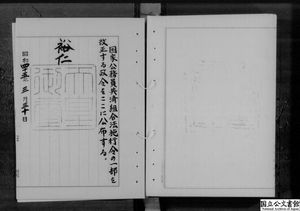 国家公務員共済組合法施行令の一部を
改正する政令をここに公布する。
裕仁
天皇御璽
昭和四五年三月三十日
国立公文書館
National Archives of Japan